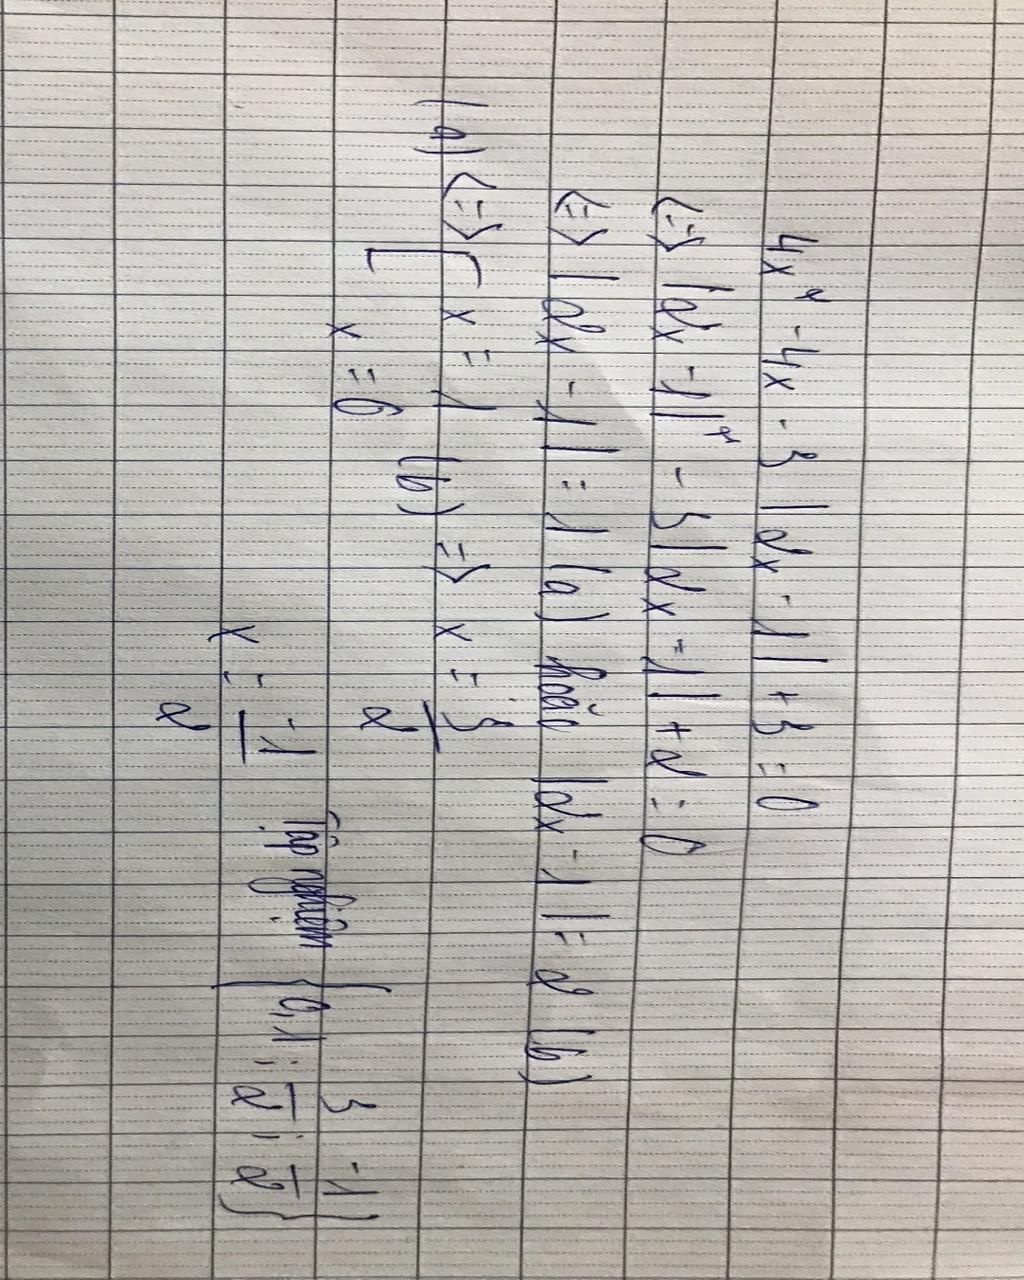 4x² - 4x - 3|2x - 1| + 3 = 0
<=> |2x - 1|² - 3|2x - 1| + 2 = 0
<=> |2x - 1| = 1 (a) hoặc |2x - 1| = 2 (b)
(a) <=> [ x = 1 (b) => x = 3/2
x = 0 x = -1/2
Tập nghiệm {0, 1; 3/2; -1/2}